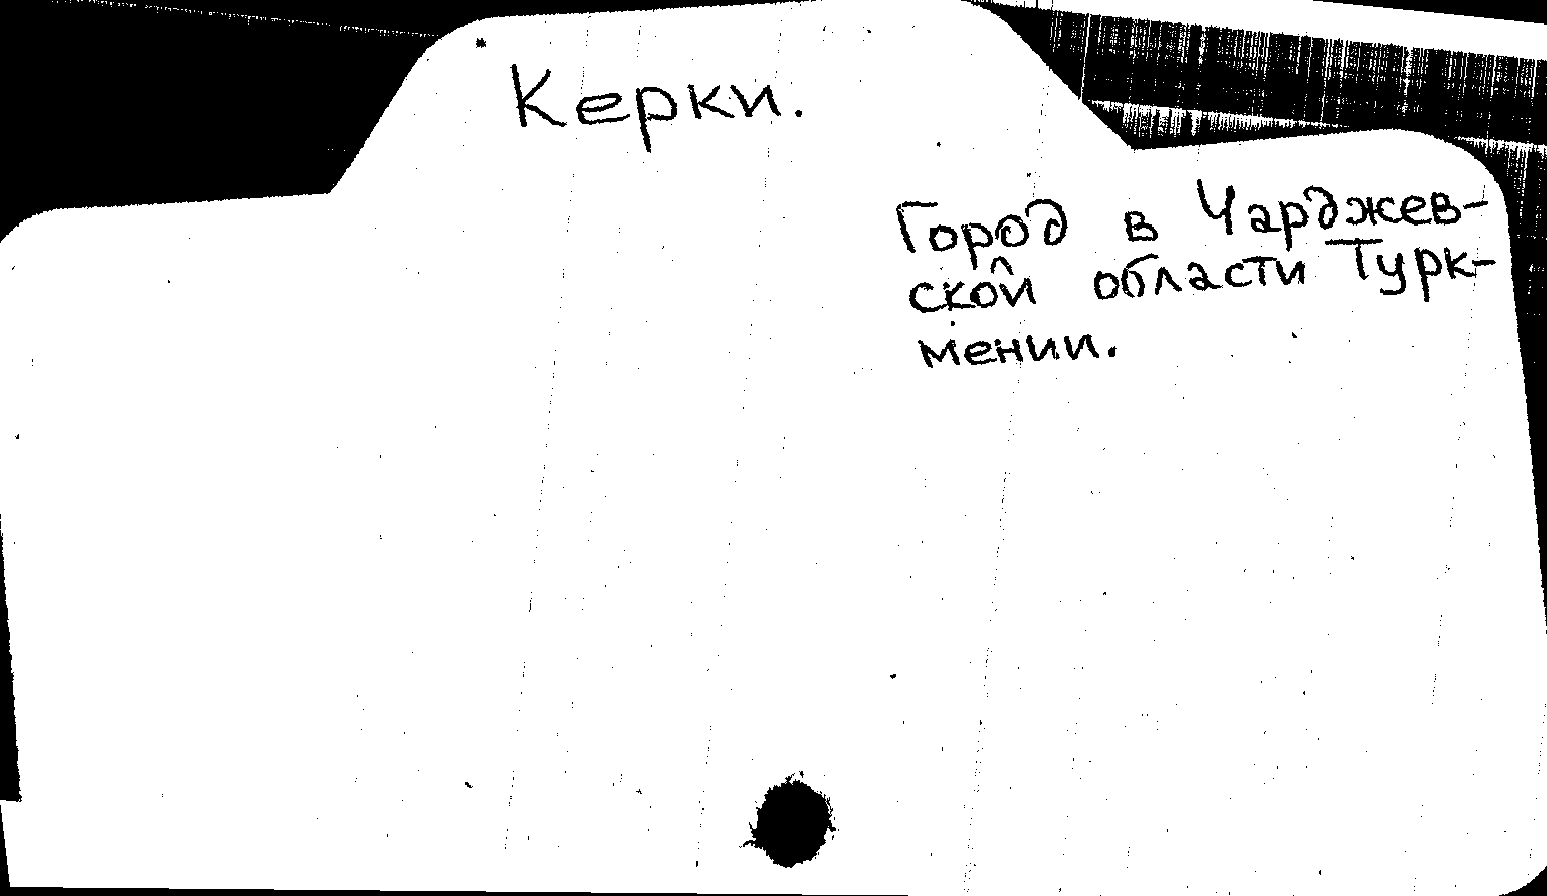 Керки.
Город в Чарджев-
ской области Турк-
мении.